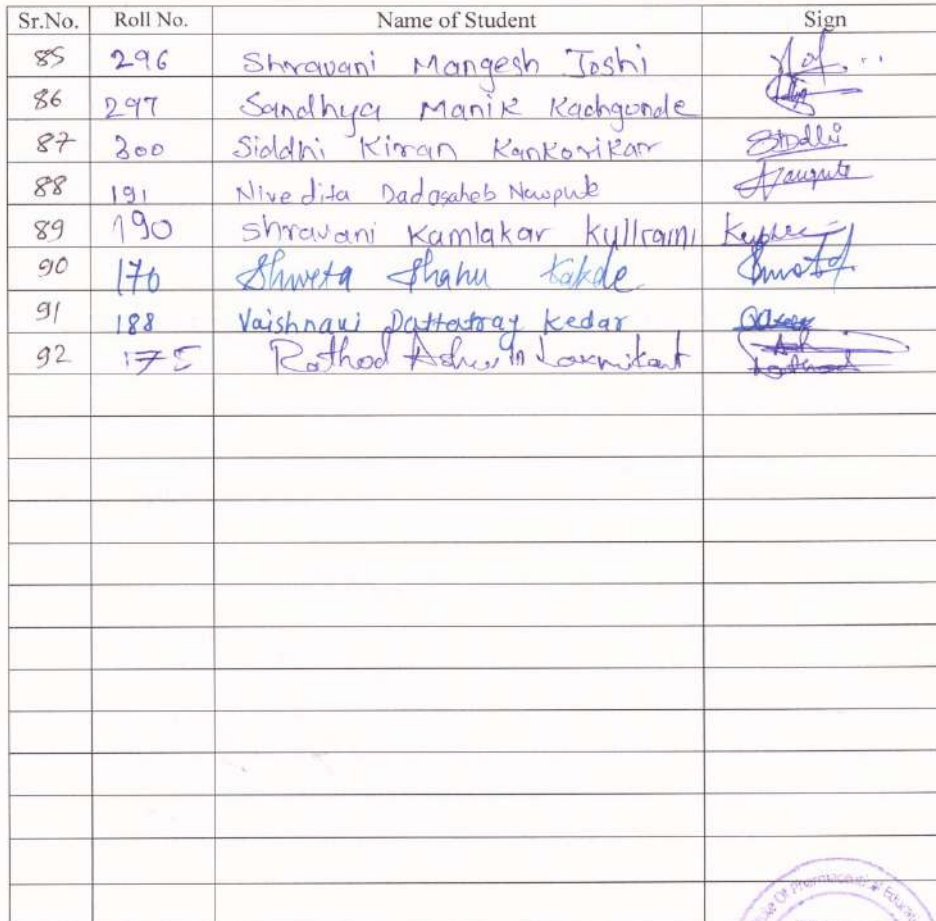 Sr.No. Roll No. Name of Student Sign
85 296 Shravani Mangesh Joshi
86 297 Sandhya Manik Kachgunde
87 300 Siddhi Kiran Kankorikar Siddhi
88 191 Nivedita Dadasaheb
89 190 Shravani Kamlakar
90 176 Shweta Shahu Kakde
91 188 Vaishnavi Dattatray Kedar
92 175 Rathod Ashwin Laxmikant
Of Pharmaceutical